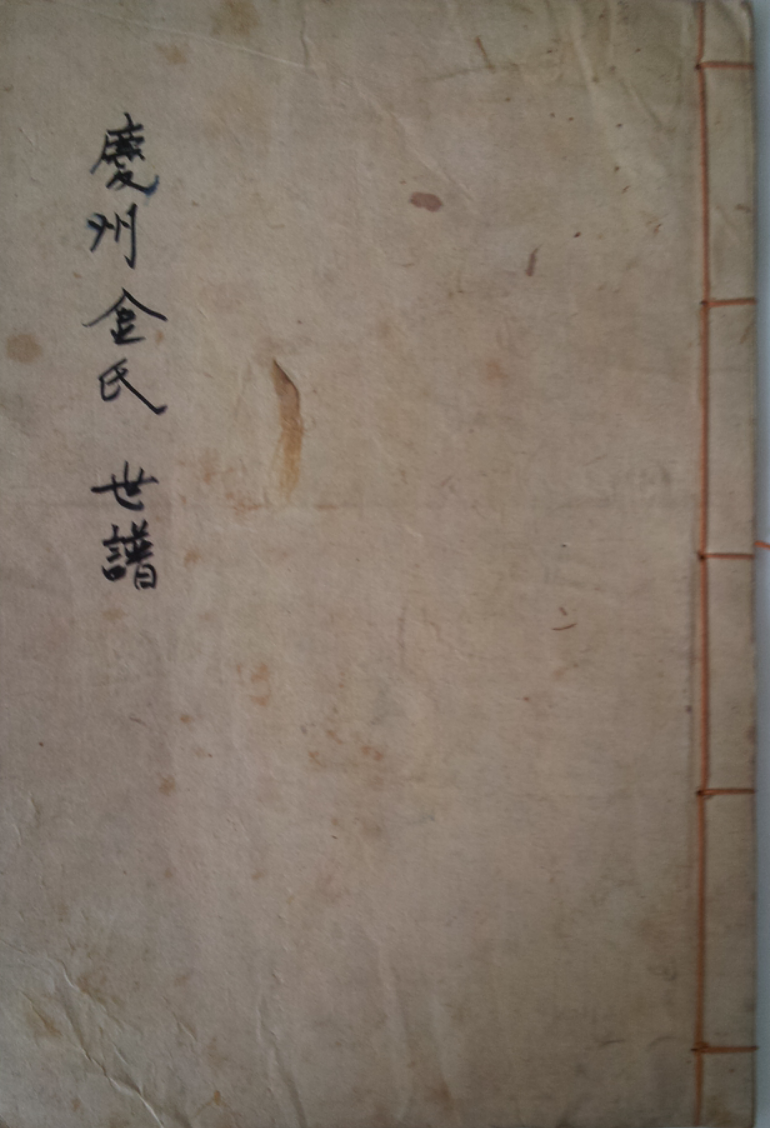 慶州金氏 世譜